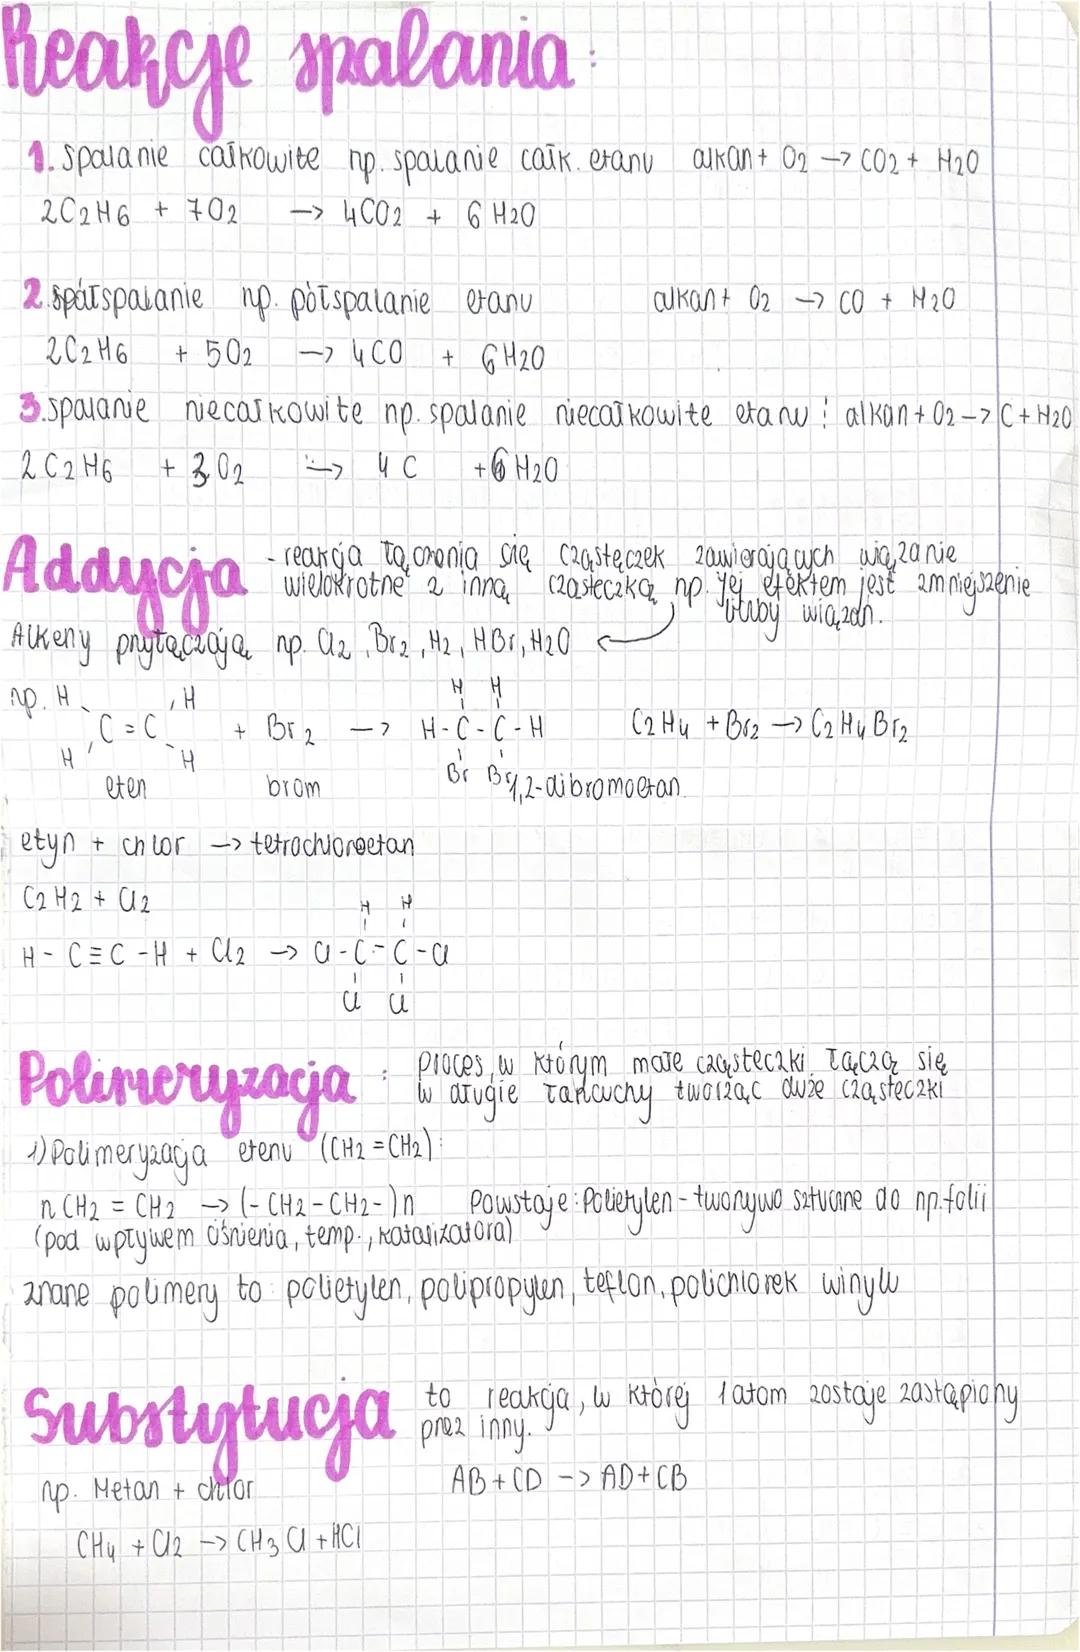 Reakcje spalania:
1. spalanie całkowite np. spalanie całk. etanu alkan + O2 -> CO2 + H2O
2C2H6 + 7O2 -> 4CO2 + 6 H2O
2. spółspalanie np. półspalanie etanu alkan + O2 -> CO + H2O
2C2H6 + 5O2 -> 4CO + 6H2O
3. spalanie niecałkowite np. spalanie niecałkowite etanu: alkan + O2 -> C + H2O
2C2H6 + 3O2 -> 4C + 6H2O
Addycja - reakcja łączenia się cząsteczek zawierających wiązanie
wielokrotne z inną cząsteczką np. Jej efektem jest zmniejszenie
liczby wiązań.
Alkeny przyłączają np. Cl2, Br2, H2, HBr, H2O
np. H H H H
C = C + Br2 -> H - C - C - H C2H4 + Br2 -> C2H4Br2
H H Br Br
eten brom 1,2-dibromoetan.
etyn + chlor -> tetrochloroetan
C2H2 + Cl2
H H
H - C ≡ C - H + Cl2 -> Cl - C - C - Cl
Cl Cl
Polimeryzacja: proces, w którym małe cząsteczki łączą się
w długie łańcuchy tworząc duże cząsteczki
1) Polimeryzacja etenu (CH2 = CH2):
n CH2 = CH2 -> (- CH2 - CH2 -)n Powstaje: Polietylen - tworzywo sztuczne do np. folii
(pod wpływem ciśnienia, temp., katalizatora)
znane polimery to: polietylen, polipropylen, teflon, polichlorek winylu
Substytucja to reakcja, w której 1 atom zostaje zastąpiony
przez inny.
np. Metan + chlor AB + CD -> AD + CB
CH4 + Cl2 -> CH3Cl + HCl